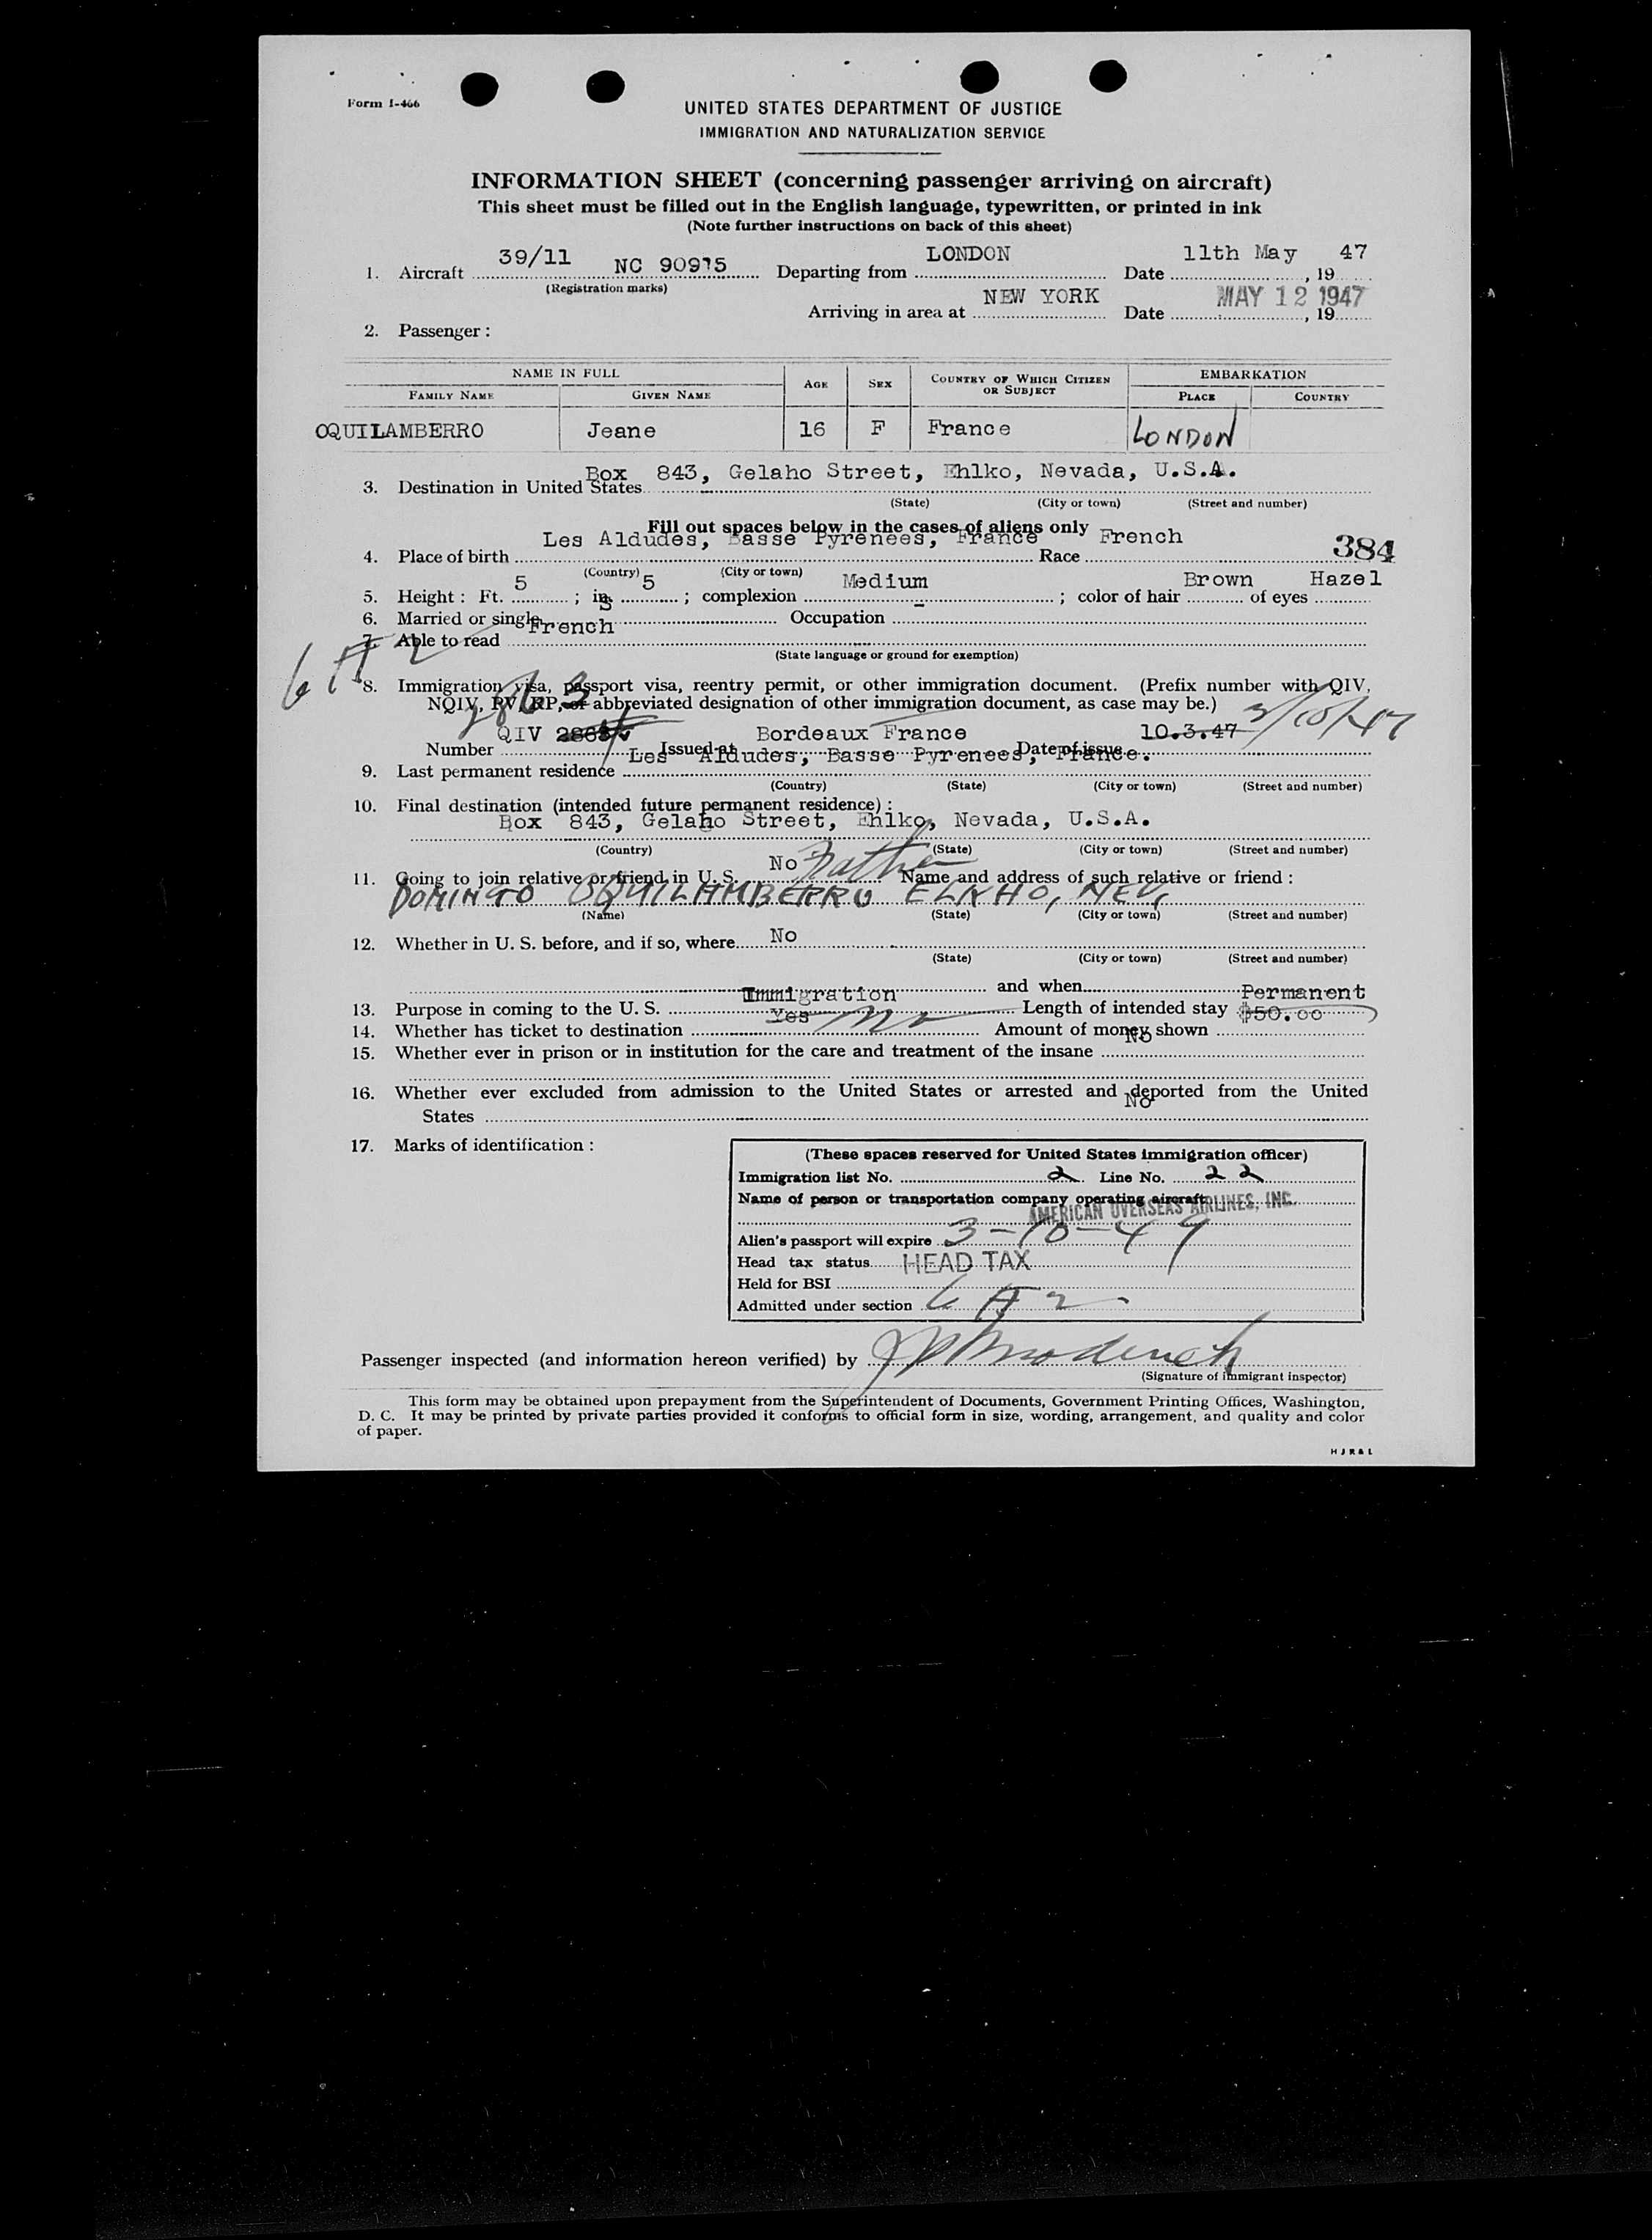 Form I-466
UNITED STATES DEPARTMENT OF JUSTICE
IMMIGRATION AND NATURALIZATION SERVICE
INFORMATION SHEET (concerning passenger arriving on aircraft)
This sheet must be filled out in the English language, typewritten, or printed in ink
(Note further instructions on back of this sheet)
1. Aircraft 39/11 NC 90915 Departing from LONDON Date 11th May, 19 47
(Registration marks)
Arriving in area at NEW YORK Date MAY 12 1947, 19
2. Passenger :
NAME IN FULL AGE SEX COUNTRY OF WHICH CITIZEN OR SUBJECT EMBARKATION
FAMILY NAME GIVEN NAME PLACE COUNTRY
OQUILAMBERRO Jeane 16 F France LONDON
3. Destination in United States Box 843, Gelaho Street, Ehlko, Nevada, U.S.A.
(State) (City or town) (Street and number)
Fill out spaces below in the cases of aliens only
4. Place of birth Les Aldudes, Basse Pyrenees, France Race French 384
(Country) (City or town)
5. Height : Ft. 5 ; in. 5 ; complexion Medium ; color of hair Brown of eyes Hazel
6. Married or single S Occupation -
7. Able to read French
(State language or ground for exemption)
6 A 2
8. Immigration visa, passport visa, reentry permit, or other immigration document. (Prefix number with QIV,
NQIV, PV, RP, or abbreviated designation of other immigration document, as case may be.)
2863 3/10/47
Number QIV Issued at Bordeaux France Date of issue 10.3.47
9. Last permanent residence Les Aldudes, Basse Pyrenees, France.
(Country) (State) (City or town) (Street and number)
10. Final destination (intended future permanent residence) :
Box 843, Gelaho Street, Ehlko, Nevada, U.S.A.
(Country) (State) (City or town) (Street and number)
11. Going to join relative or friend in U. S. No Father Name and address of such relative or friend :
DOMINGO OQUILAMBERRO ELKHO, NEV,
(Name) (State) (City or town) (Street and number)
12. Whether in U. S. before, and if so, where No
(State) (City or town) (Street and number)
and when
13. Purpose in coming to the U. S. Immigration Length of intended stay Permanent
14. Whether has ticket to destination Yes No Amount of money shown $50.00
15. Whether ever in prison or in institution for the care and treatment of the insane No
16. Whether ever excluded from admission to the United States or arrested and deported from the United
States No
17. Marks of identification :
(These spaces reserved for United States immigration officer)
Immigration list No. 2 Line No. 22
Name of person or transportation company operating aircraft
AMERICAN OVERSEAS AIRLINES, INC.
Alien's passport will expire 3-10-49
Head tax status HEAD TAX
Held for BSI
Admitted under section 6 A 2
Passenger inspected (and information hereon verified) by
(Signature of immigrant inspector)
This form may be obtained upon prepayment from the Superintendent of Documents, Government Printing Offices, Washington,
D. C. It may be printed by private parties provided it conforms to official form in size, wording, arrangement, and quality and color
of paper.
H J R & L